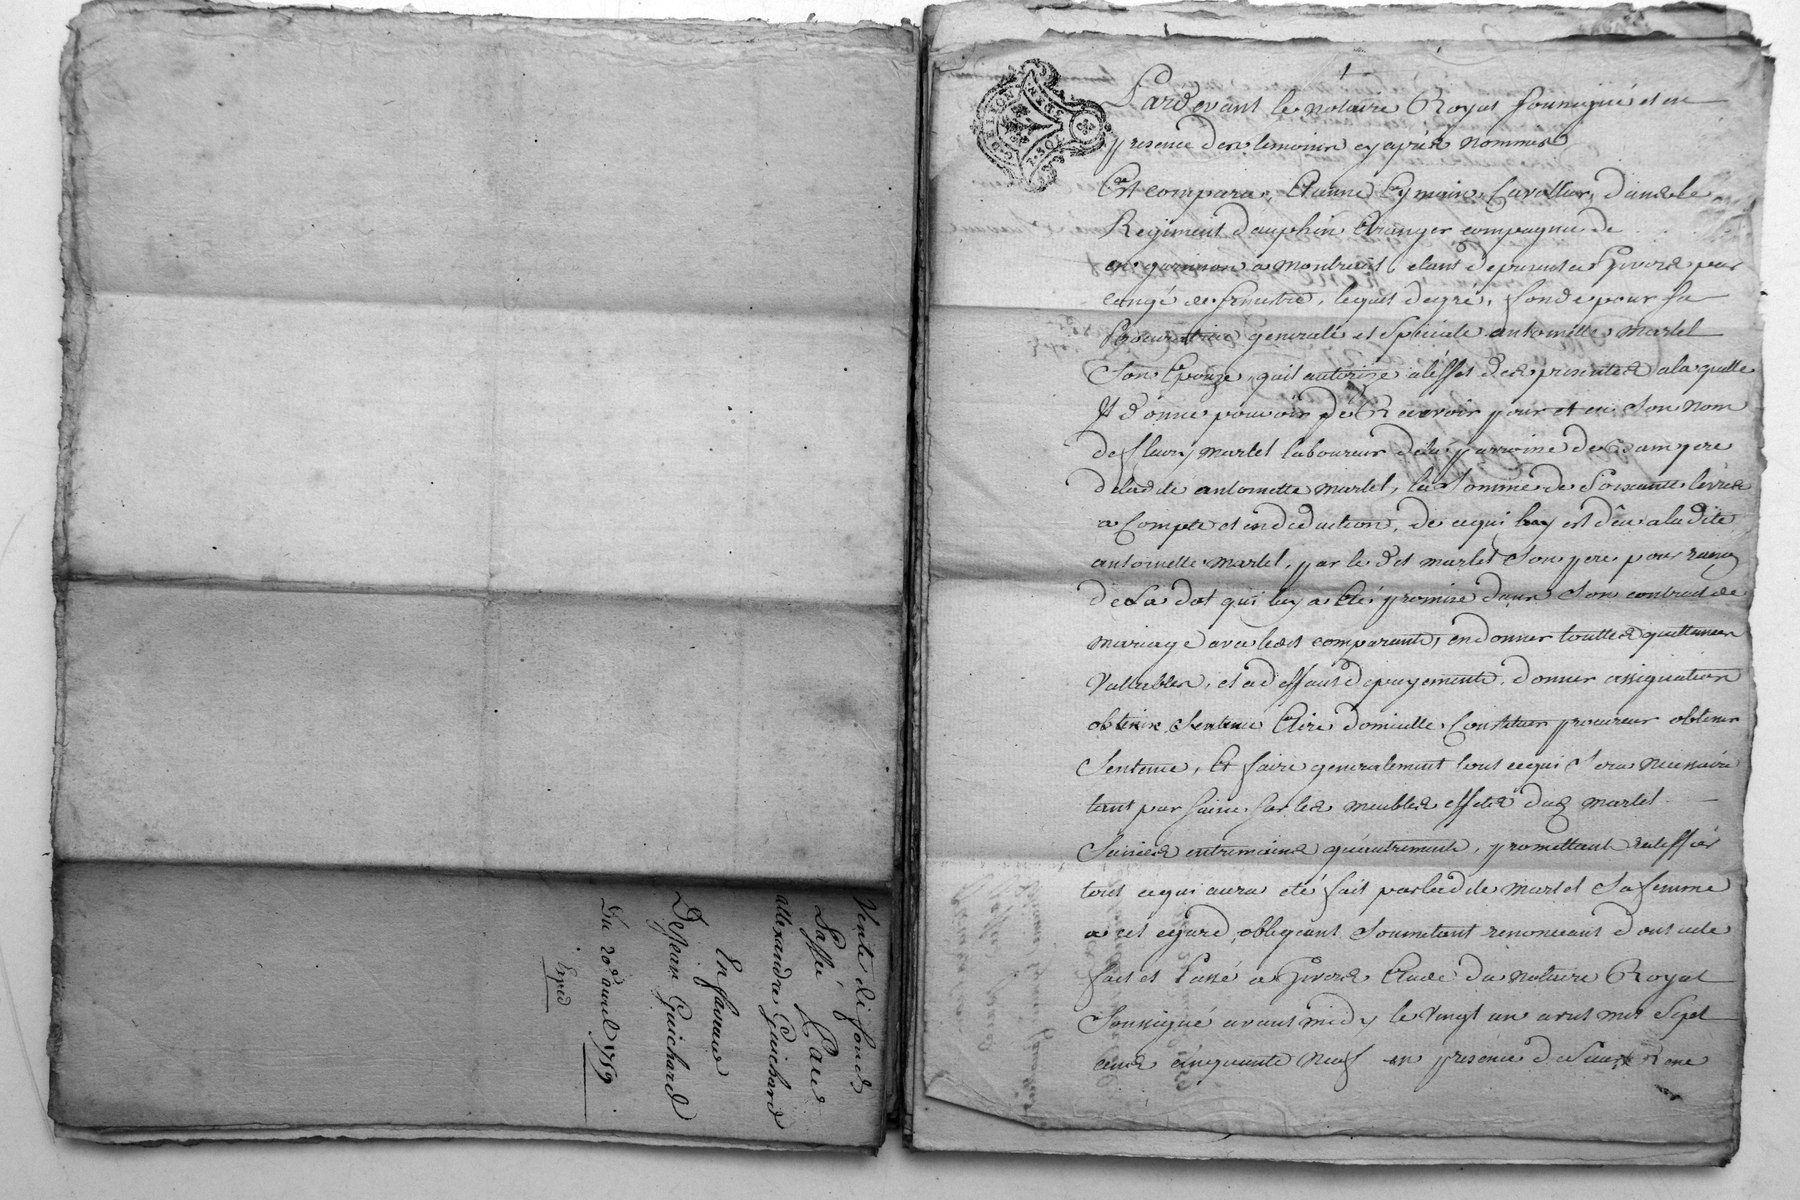 Vente de fonds
Passée Par
allexandre Guichard
En faveur
De Jean Guichard
Du 20e avril 1759
Exped
GENERALITE DE LYON
Pardevant le notaire Royal soussigné et en
presence des temoins cy après nommés
Est comparu, Etienne Eymain Cavallier, dans le
Regiment dauphin Etranger compagnie de
en garnison a montreuil, etant de present a Givors par
congé de semestre, lequel de gré, fonde pour sa
Procuratrice generalle et speciale antoinette Martel
Son Epouze, quil autorize a léffet des presentes a laquelle
Il donne pouvoir de Recevoir pour et en son nom
de fleury Martel laboureur de la parroisse de Dampere
de ladite antoinette Martel, la somme de soixante livres
a compte et en deduction, de ce qui luy est dêu a la dite
antoinette Martel, par le dit Martel son pere pour
de La dot qui luy a été promise dans son contrat de
mariage avec ledit comparant, en donner touttes quittances
Vallables, et a deffaut de payement, donner assignation
obtenir sentence Elire domicille Constituer procureur obtenir
Sentence, Et faire generalement tout ce qui sera necessaire
tant par saisie sur les meubles effets dud Martel
Saisies entremains quautrement, promettant ratiffier
tout ce qui aura eté fait par lad de Martel sa femme
a cet egard, obligeant soumettant renonceant dont acte
fait et Passé a Givors Etude du notaire Royal
Soussigné avant midy le Vingt un avril mil sept
cent cinquante neuf en presence de Sieur Rene